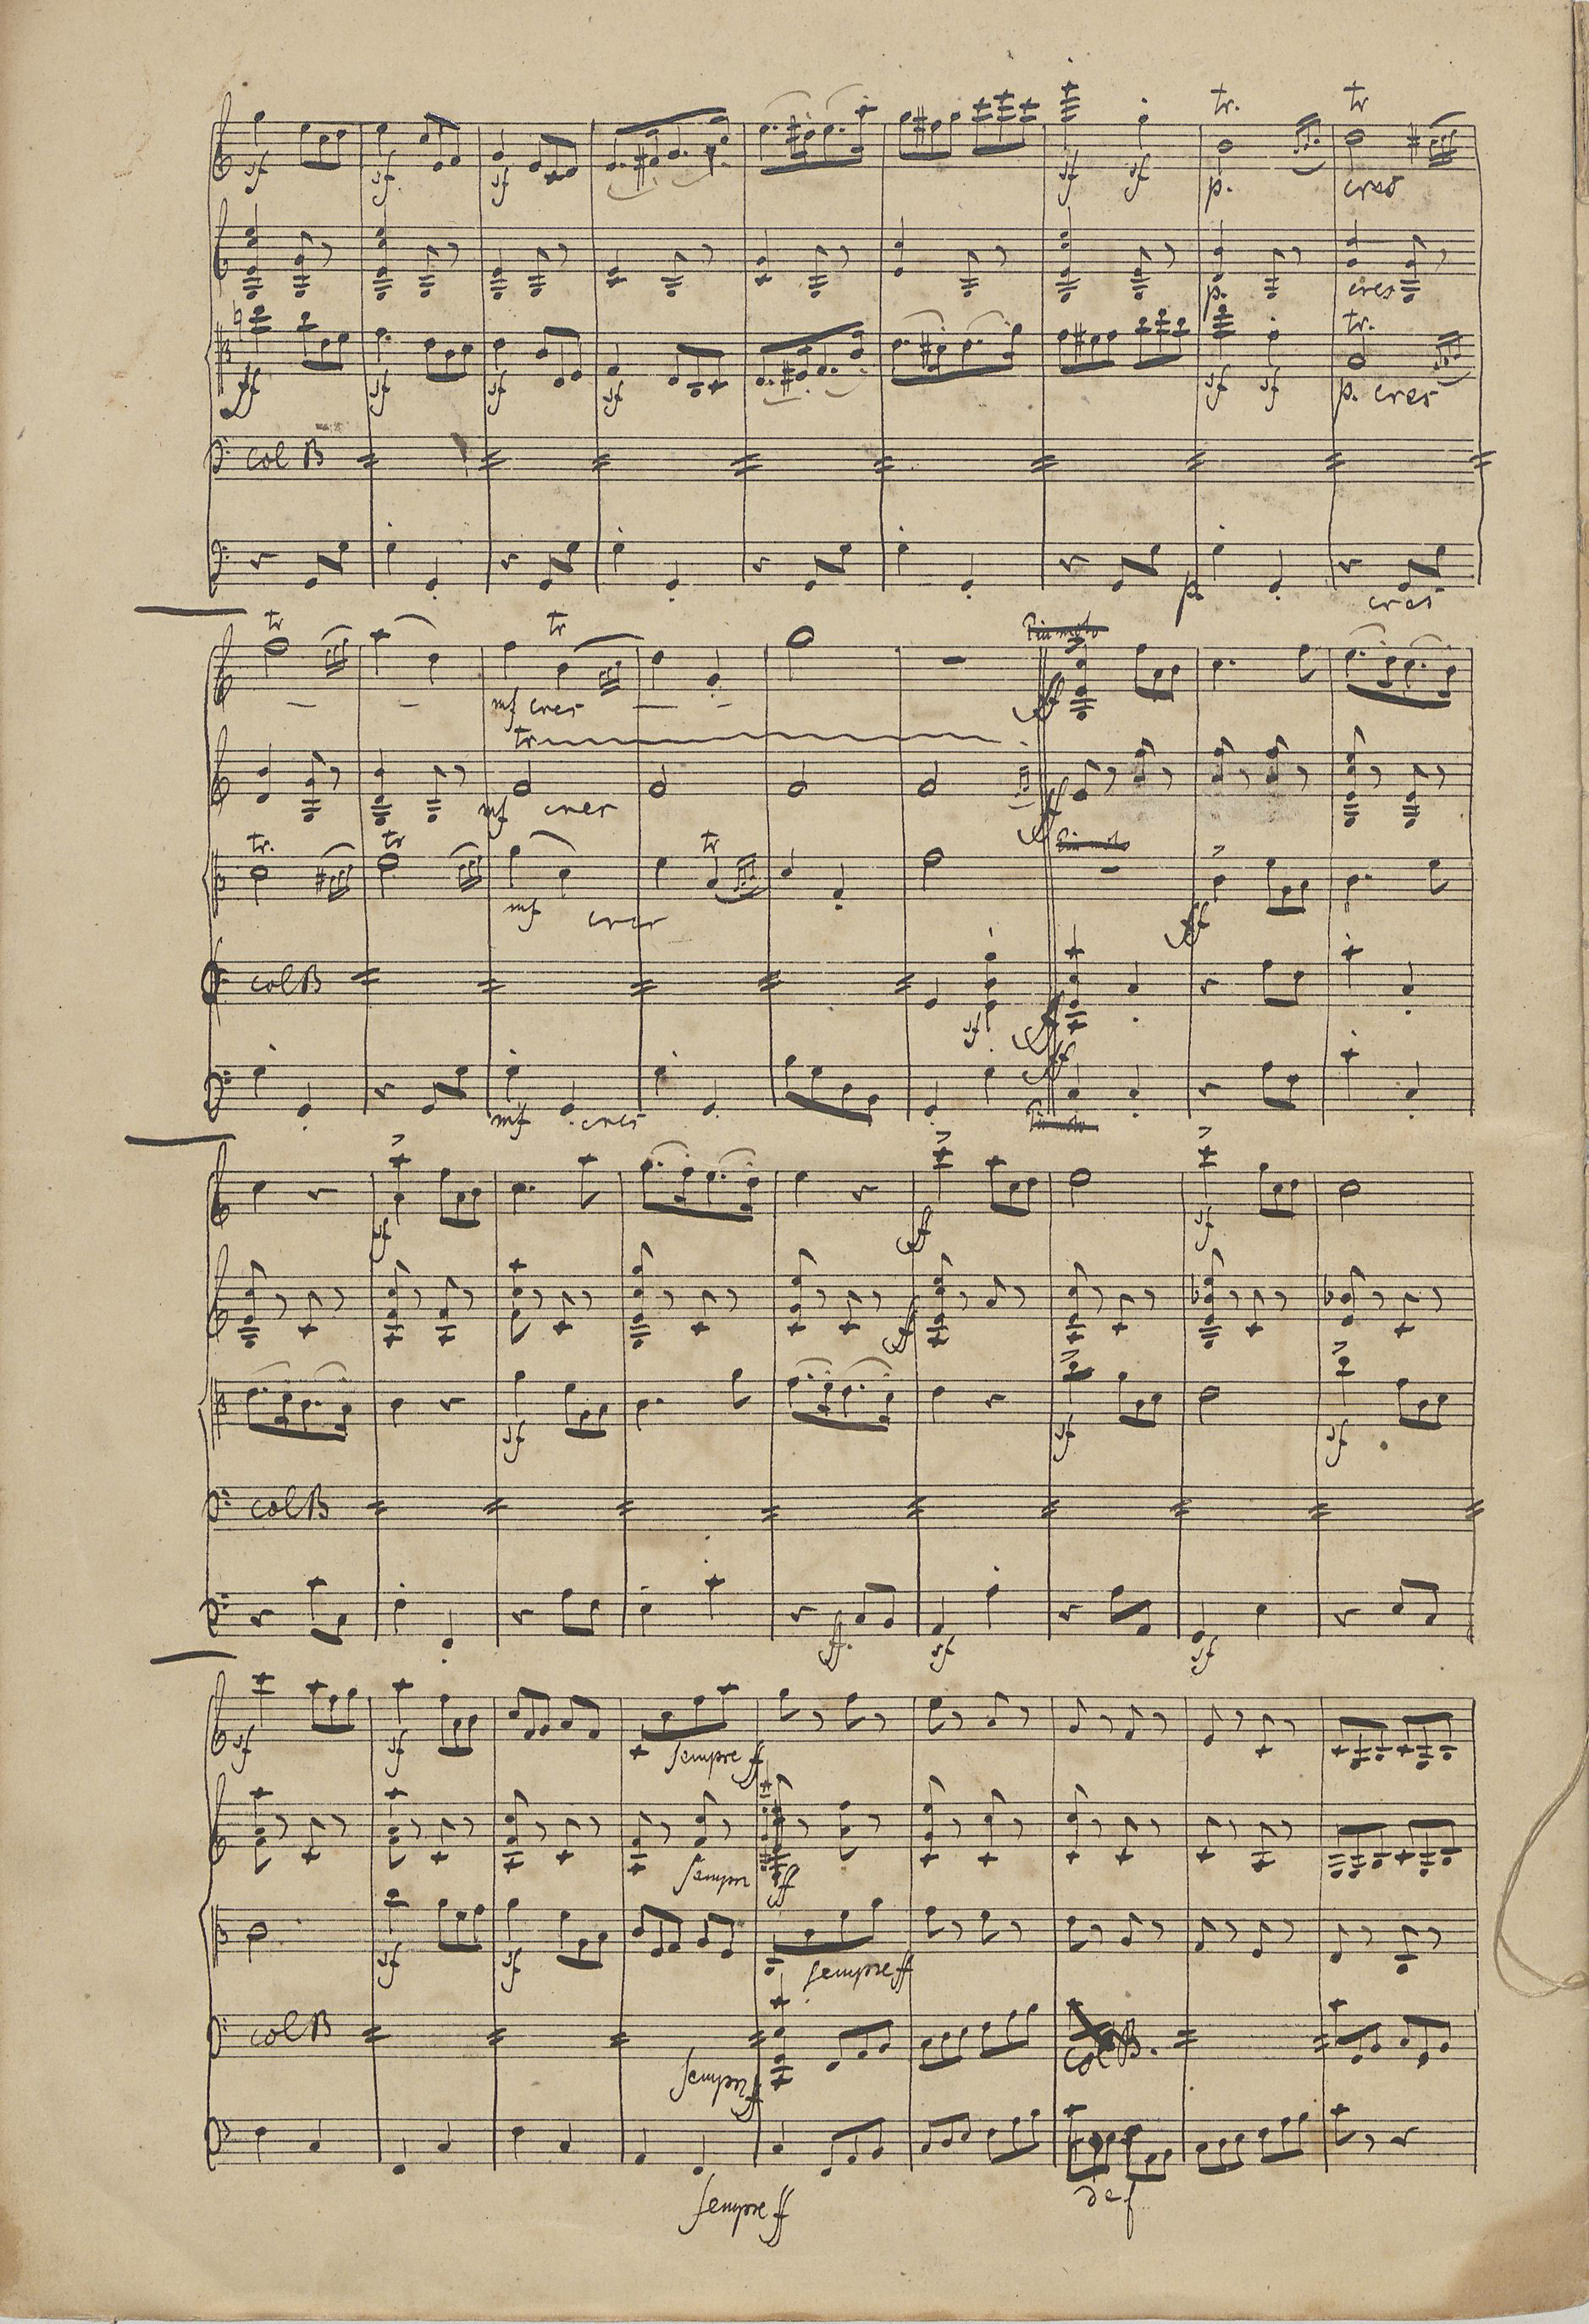 tr. tr
sf sf sf sf sf p. cres
p. cres
tr.
ff sf sf sf sf sf p. cres
col B
p. cres
tr tr Piu moto
mf cres ff
tr
mf cres ff
tr. tr tr
mf cres ff
col B sf ff
mf cres ff
sf ff sf
ff
sf sf sf
col B
ff. sf sf
sf sf sempre ff
sempre ff
sf sf sempre ff
col B sempre ff col B.
sempre ff
def